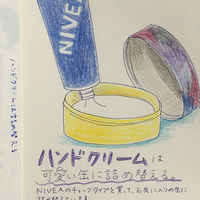 NIVEA
ハンドクリームは
可愛い缶に詰め替える。
NIVEAのチューブタイプを買って、お気に入りの缶に